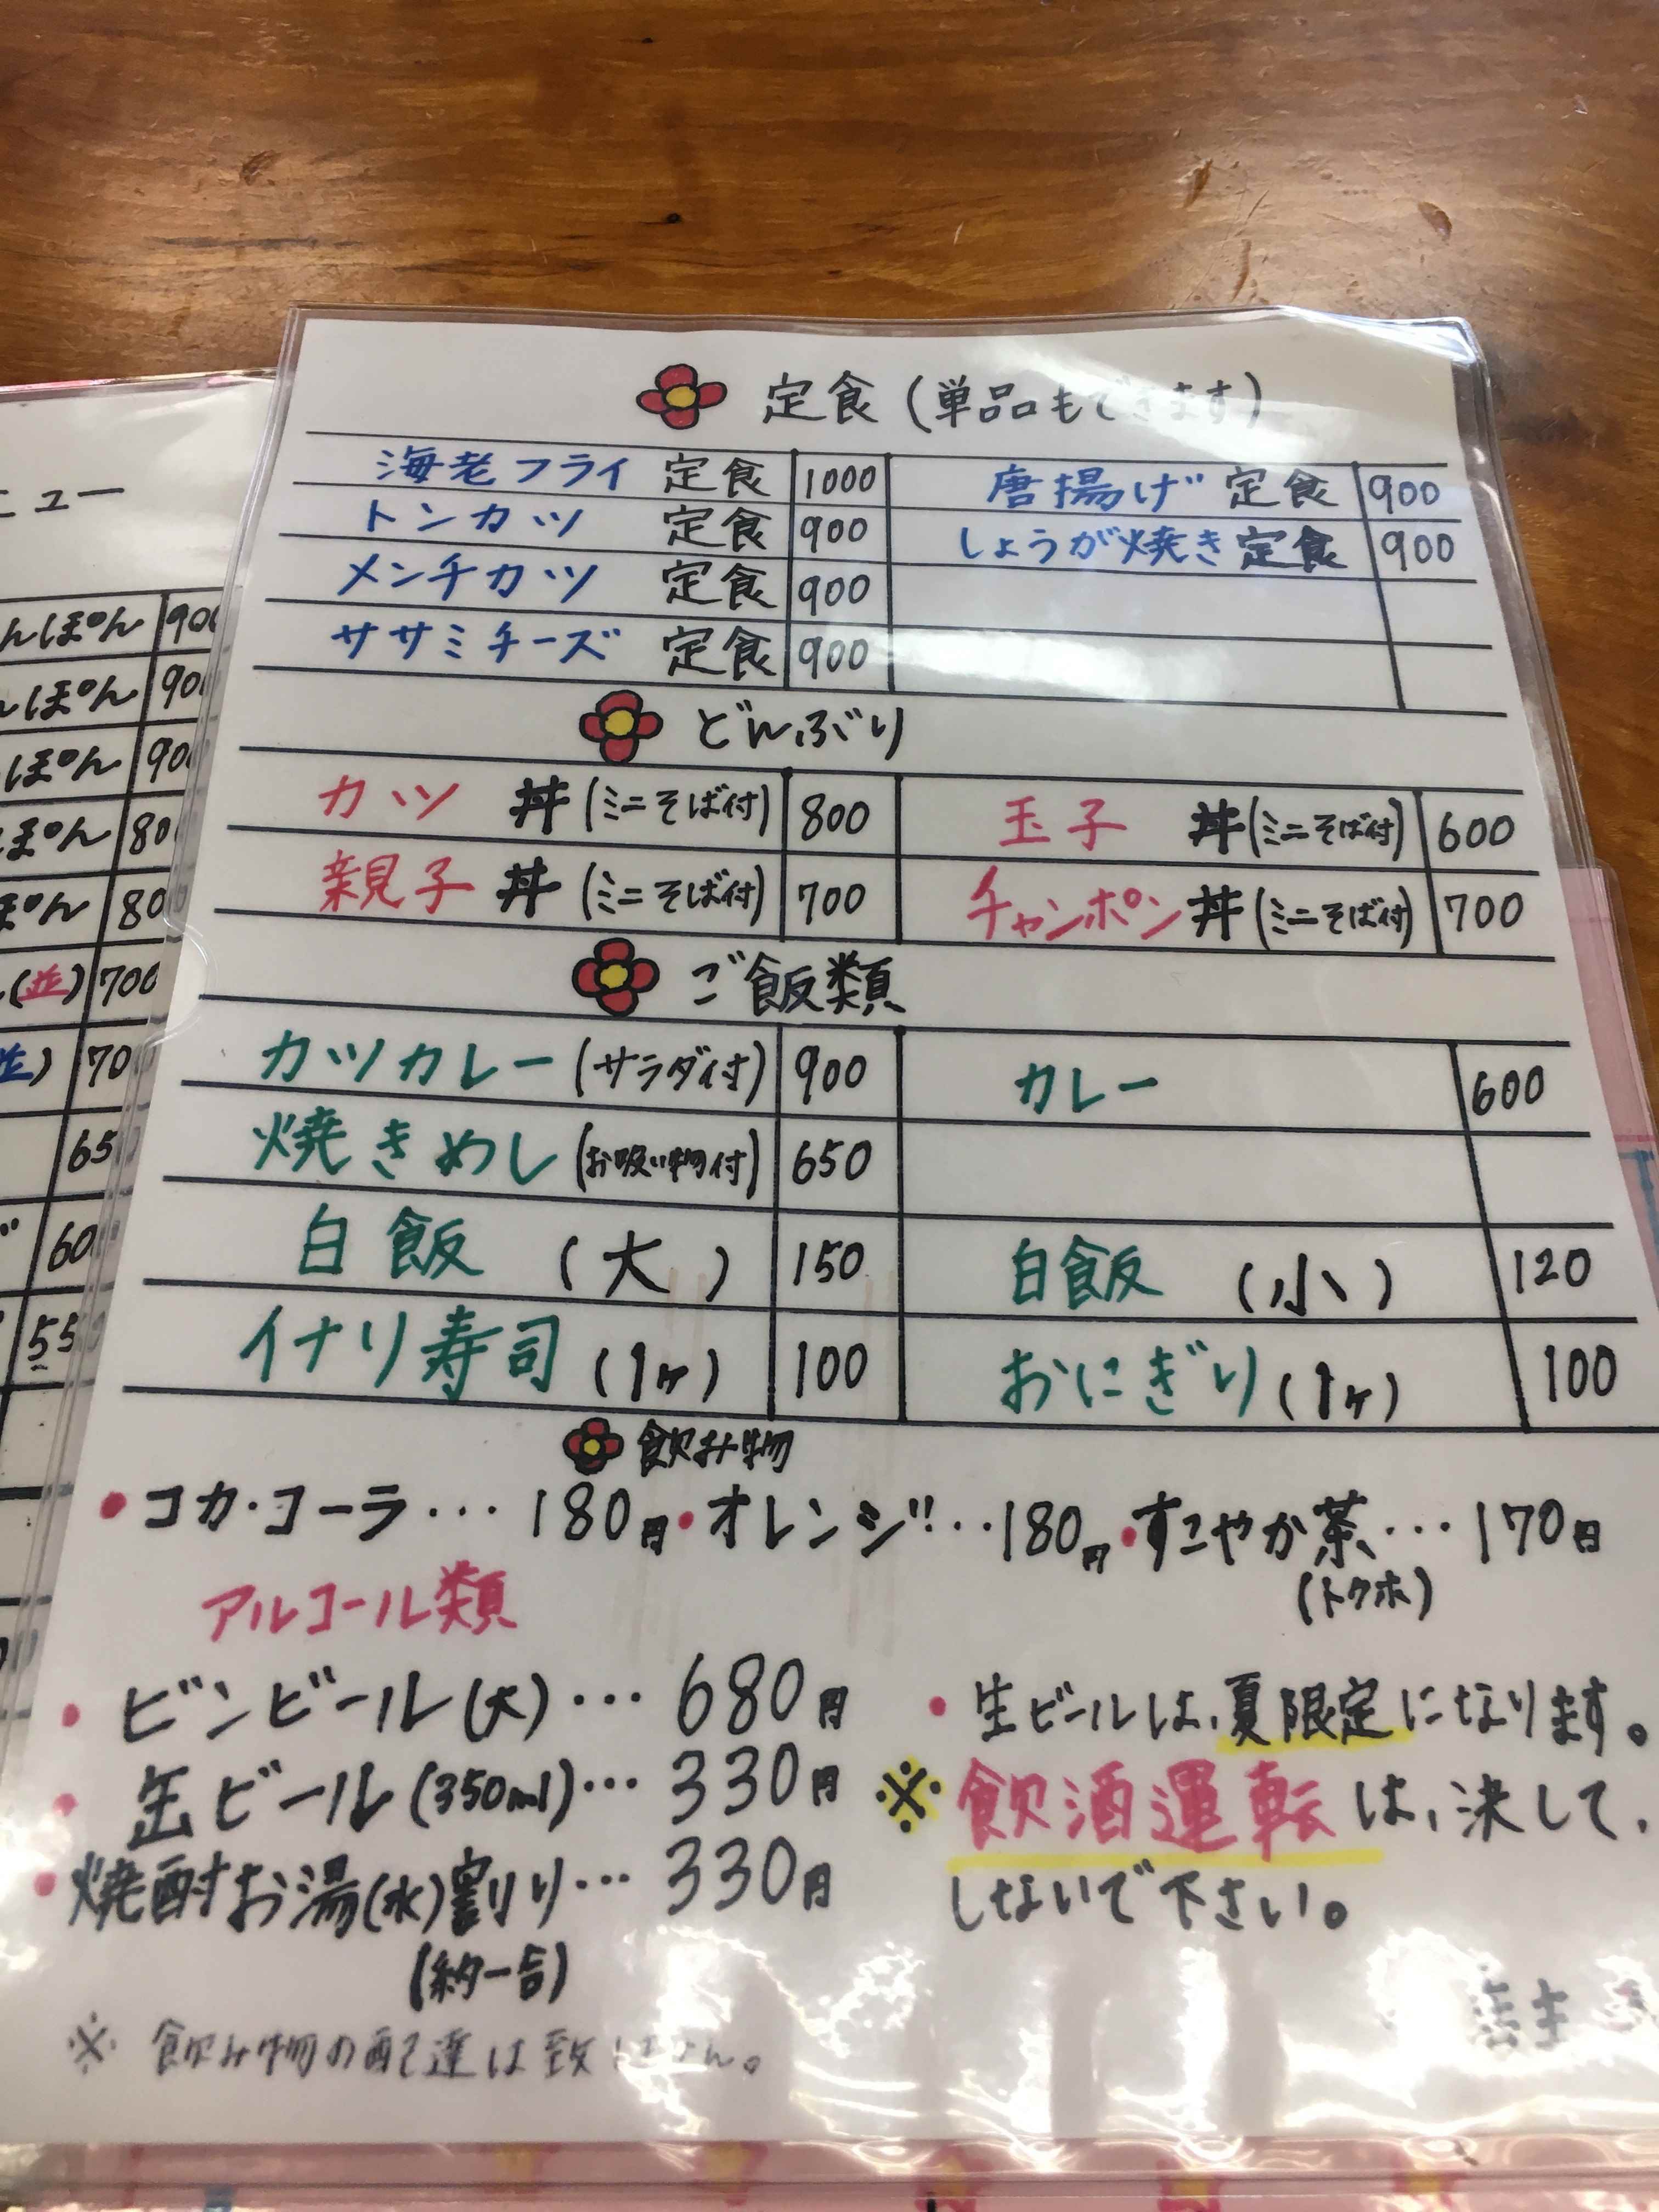 ニュー
んぽん 900
ぽん 90
ぽん 90
ぽん 80
ぽん 80
(並) 700
並) 70
65
60
55
定食(単品もできます)
海老フライ 定食 1000 唐揚げ 定食 900
トンカツ 定食 900 しょうが焼き定食 900
メンチカツ 定食 900
ササミチーズ 定食 900
どんぶり
カツ 丼(ミニそば付) 800 玉子 丼(ミニそば付) 600
親子 丼(ミニそば付) 700 チャンポン丼(ミニそば付) 700
ご飯類
カツカレー(サラダ付) 900 カレー 600
焼きめし(お吸い物付) 650
白飯 (大) 150 白飯 (小) 120
イナリ寿司(1ヶ) 100 おにぎり(1ヶ) 100
飲み物
・コカ・コーラ… 180円・オレンジ…180円・すこやか茶… 170円
(トクホ)
アルコール類
・ビンビール(大)… 680円
・缶ビール(350ml)… 330円
・焼酎お湯(水)割り… 330円
(約一合)
・生ビールは、夏限定になります。
※飲酒運転は、決して、
しないで下さい。
店主
※ 飲み物の配達は致しません。